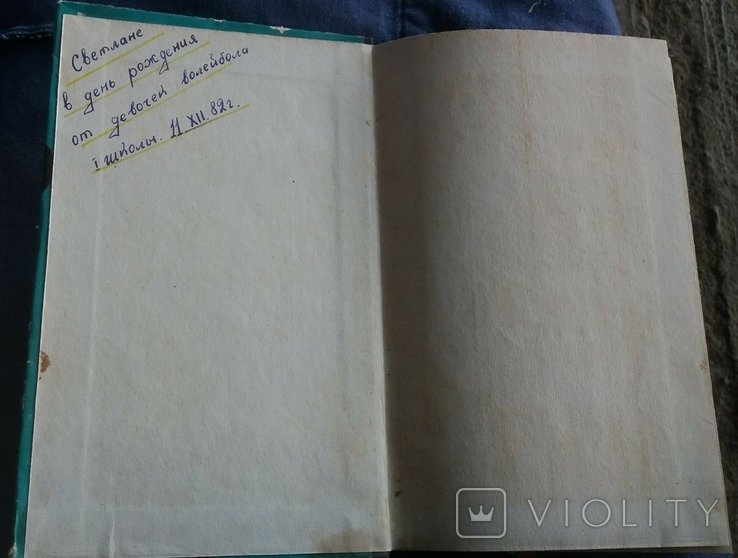 Светлане
в день рождения
от девочек волейбола
I школы. 11 XII. 82 г.
VIOLITY